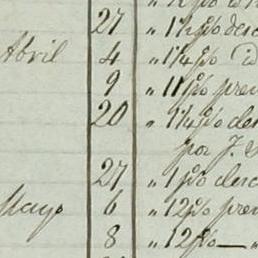 27 " 1½ p% desc
Abril 4 " 1¼ p% id
9 " 11 p% prem
20 " 1¼ p% des
por J.
27 " 1 p% desc
Mayo 6 " 12 p% prem
8 " 12 p% — "